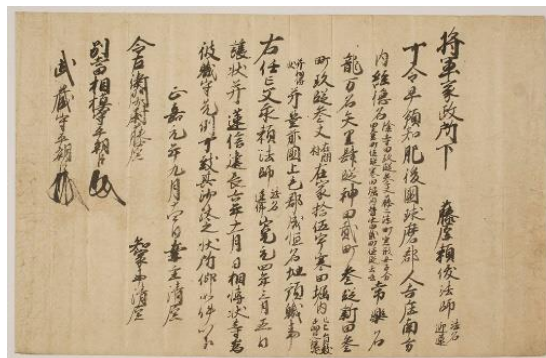 将軍家政所下 藤原頼俊法師 法名
可令早領知肥後國球磨郡人吉庄南方
内経徳名 常楽名
龍万名矢黒肆段神田貳町参段新田参
町玖段参丈 在家拾伍宇寒田堀内
并豊前國上毛郡成恒名地頭職事
右任亡父永頼法師 法名蓮佛 寛元四年三月五日
譲状并蓮信建長六年十一月日相博状等為
彼職守先例可致其沙汰之状所仰如件以下
正嘉元年九月 日 案主清原
知家事清原
令左衛門少尉藤原
別當相模守平朝臣
武蔵守平朝臣